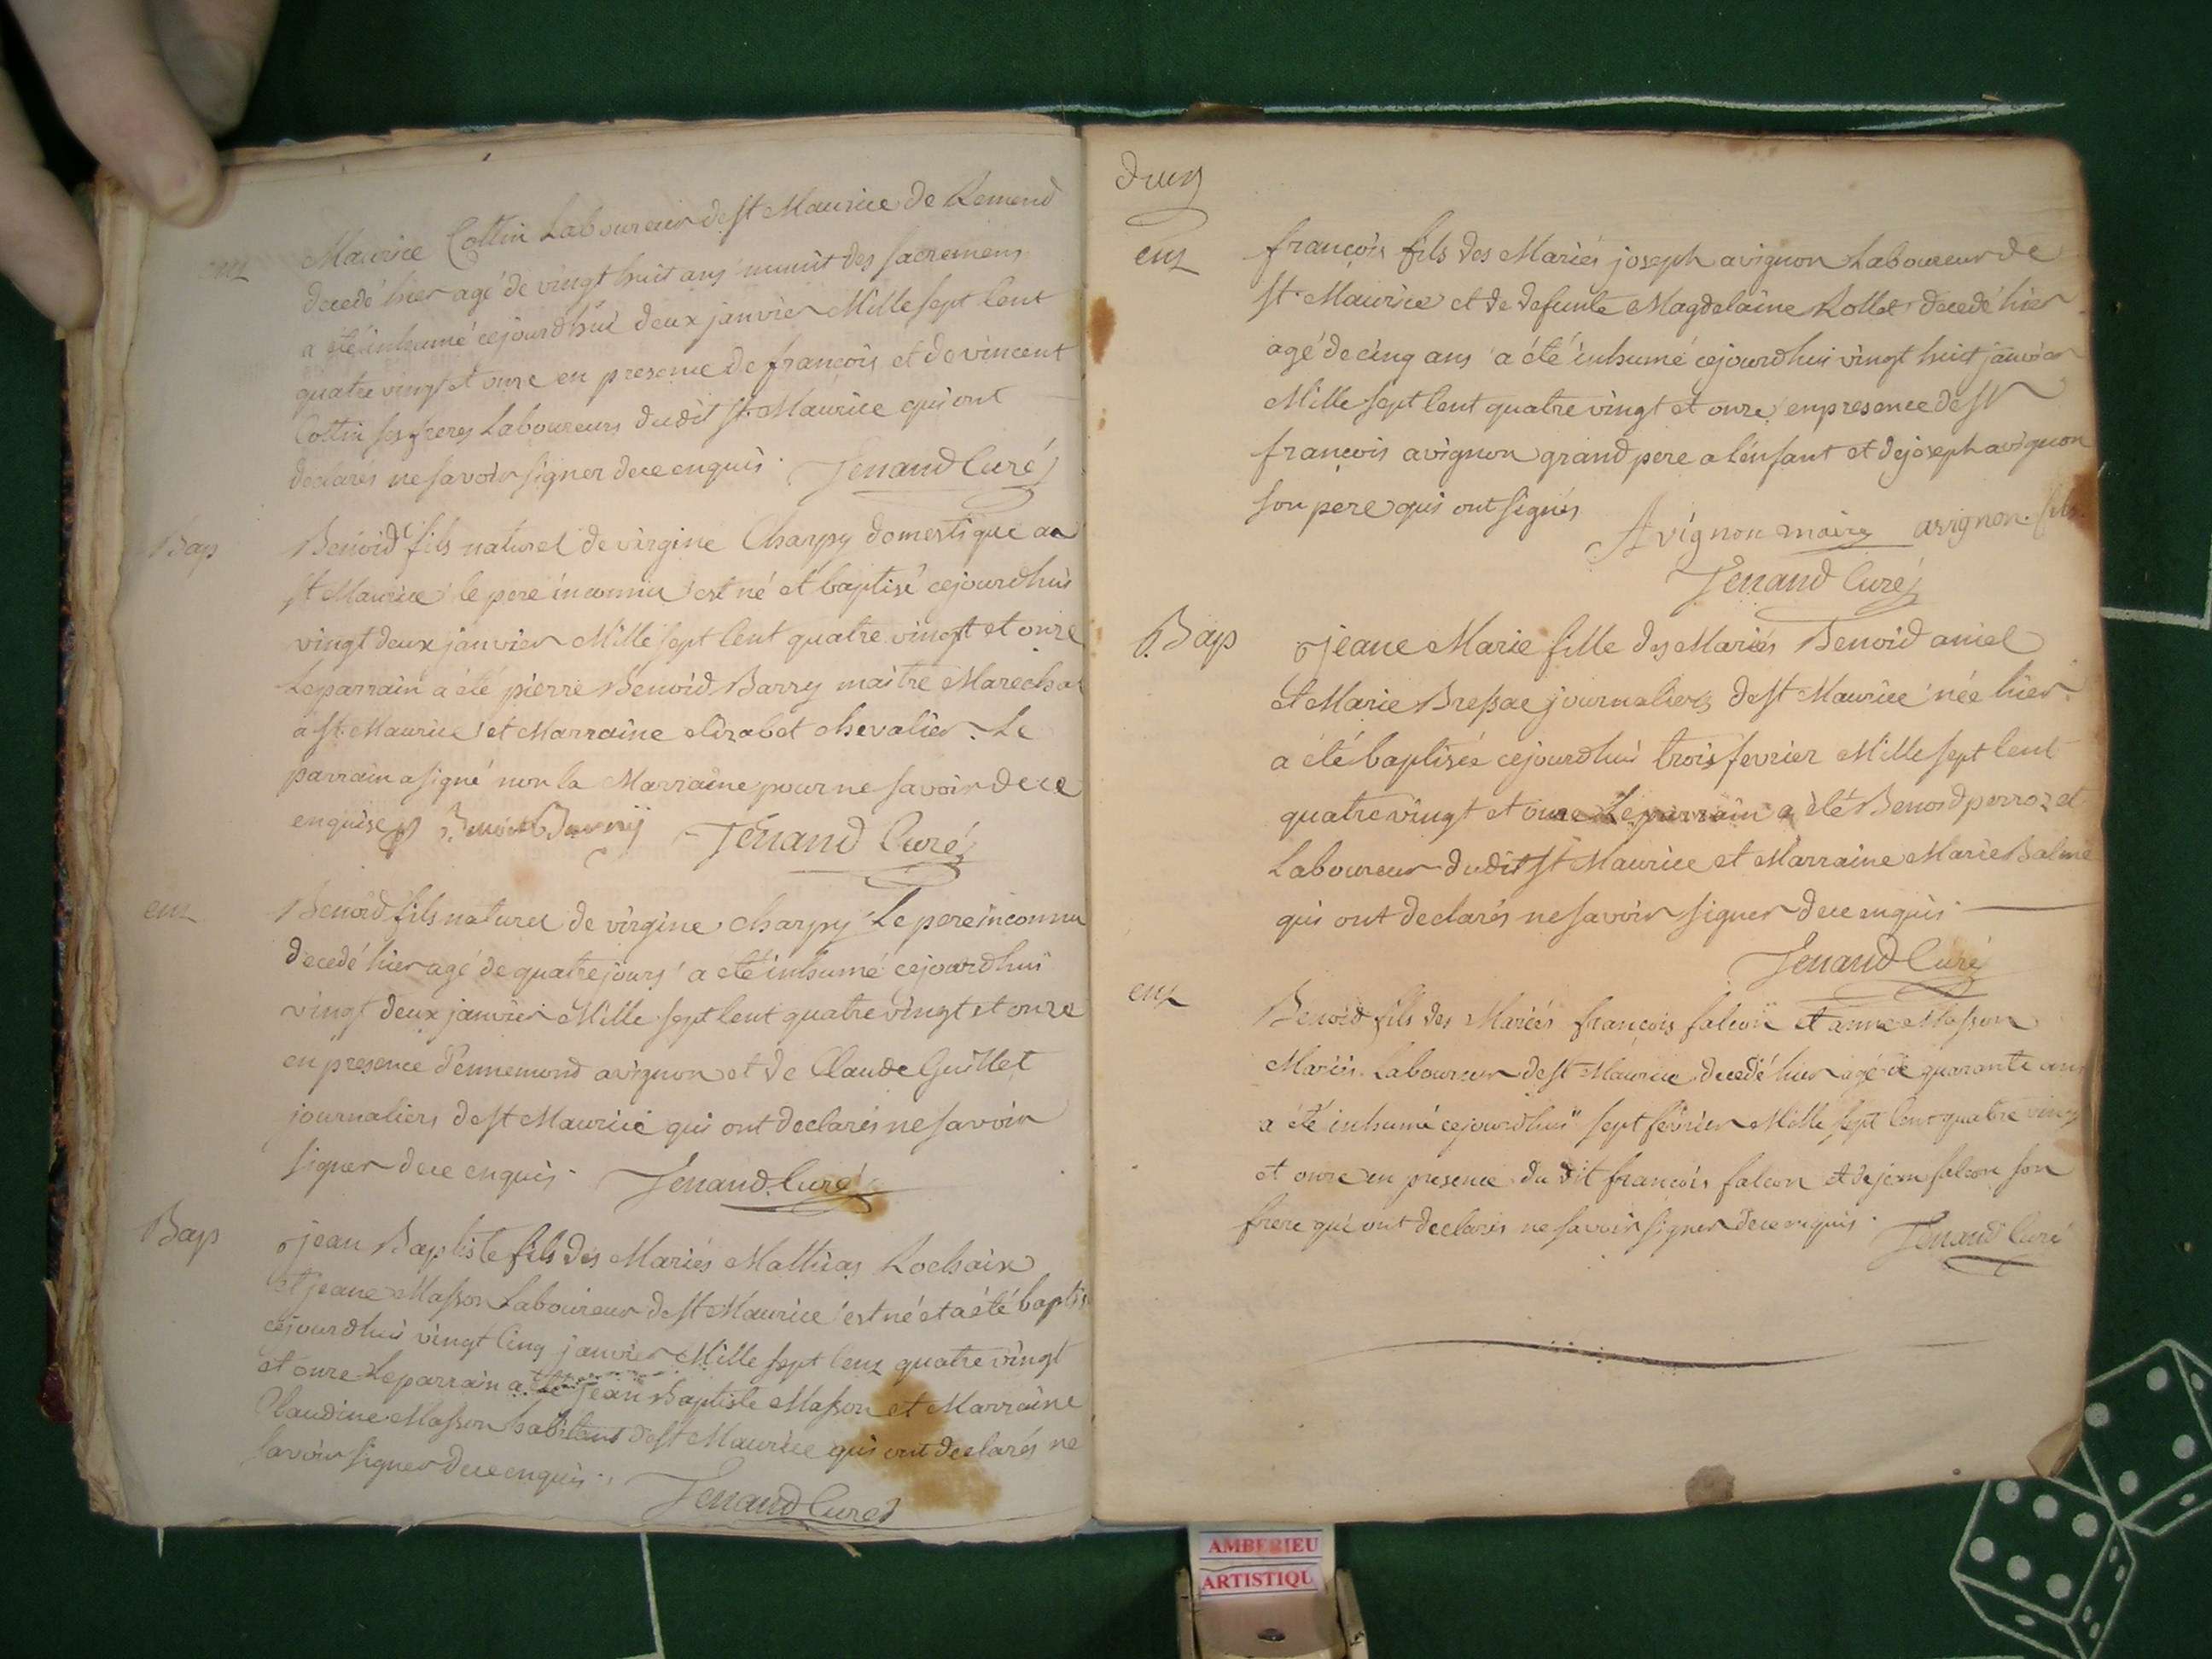 Maurice Cottin Laboureur de st Maurice de Remend
decedé hier agé de vingt huit ans munit des sacremens
a été inhumé cejourdhui deux janvier Mille sept Cent
quatre vingt et onze en presence de françois et de vincent
Cottin ses freres Laboureurs dudit st. Maurice qui ont
declarés ne savoir signer de ce enquis. Jenand Curé
Bap
Benoid fils naturel de virgine Charpy domestique au
st Maurice le pere inconnu est né et baptisé cejourdhui
vingt deux janvier Mille sept Cent quatre vingt et onze
Le parrain a été pierre Benoid Barry maitre Marechal
a st. Maurice et Marraine elizabet chevalier. Le
parrain a signé non la Marraine pour ne savoir de ce
enquise Benoit Barry Jenand Curé
en
Benoid fils naturel de virgine charpy Le pere inconnu
decedé hier agé de quatre jours a eté inhumé cejourdhui
vingt deux janvier Mille sept Cent quatre vingt et onze
en presence d'ennemond avignon et de Claude Guillet
journaliers de st Maurice qui ont declarés ne savoir
signer de ce enquis. Jenand Curé
Bap
jean Baptiste fils des Mariés Mathias Rochaix
et jeane Masson Laboureur de st Maurice est né et a été baptis
cejourdhui vingt Cinq janvier Mille sept Cent quatre vingt
et onze Le parrain a été jean Baptiste Masson et Marraine
Claudine Masson habitans de st Maurice qui ont declarés ne
savoir signer de ce enquis. Jenand Curé
deux
en
françois fils des Mariés joseph avignon Laboureur de
st. Maurice et de defunte Magdelaine Rollet decedé hier
agé de cinq ans a été inhumé cejourdhui vingt huit janvier
Mille sept Cent quatre vingt et onze en presence de sr
françois avignon grand pere a l'enfant et de joseph avignon
son pere qui ont signés Avignon maire avignon fils
Jenand Curé
Bap
jeane Marie fille des Mariés Benoid aniel
et Marie Bressae journaliers de st Maurice née hier
a été baptisée cejourdhui trois fevrier Mille sept Cent
quatre vingt et onze Le parrain a été Benoid perroz et
Laboureur dudit st Maurice et Marraine Marie Balme
qui ont declarés ne savoir signer de ce enquis.
Jenand Curé
en
Benoid fils des Mariés françois falcon et anne Masson
Mariés Laboureur de st Maurice decedé hier agé de quarante ans
a été inhumé cejourdhui sept février Mille sept Cent quatre vingt
et onze en presence du dit françois falcon et de jean falcon son
frere qui ont declarés ne savoir signer de ce enquis. Jenand Curé
AMBERIEU
ARTISTIQU